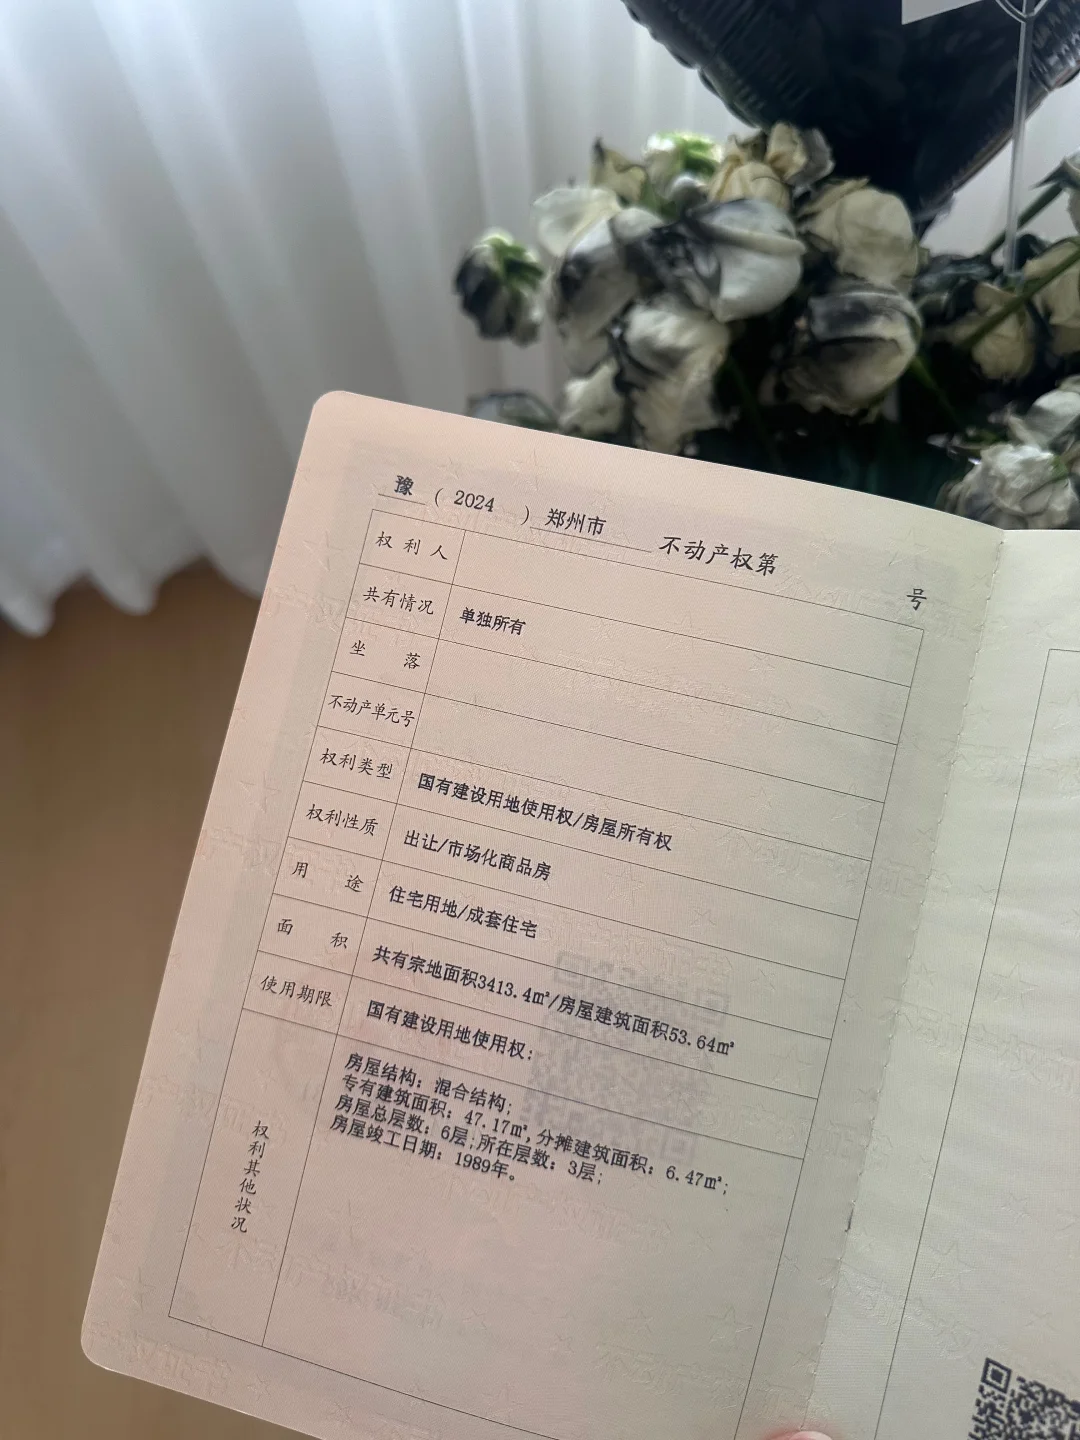 豫 （ 2024 ） 郑州市 不动产权第 号
权利人
共有情况 单独所有
坐落
不动产单元号
权利类型 国有建设用地使用权/房屋所有权
权利性质 出让/市场化商品房
用途 住宅用地/成套住宅
面积 共有宗地面积3413.4㎡/房屋建筑面积53.64㎡
使用期限 国有建设用地使用权:
权利其他状况
房屋结构: 混合结构;
专有建筑面积: 47.17㎡, 分摊建筑面积: 6.47㎡;
房屋总层数: 6层; 所在层数: 3层;
房屋竣工日期: 1989年。